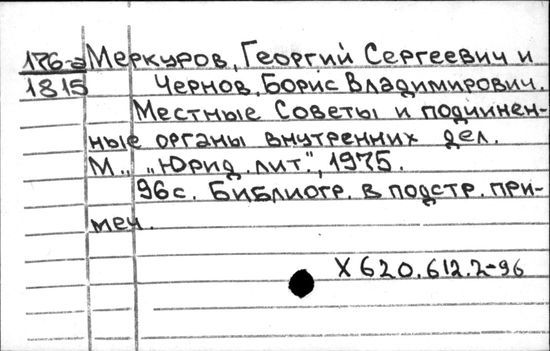 176-а Меркуров, Георгий Сергеевич и
1815 Чернов, Борис Владимирович.
Местные Советы и подчинен-
ные органы внутренних дел.
М., „Юрид. лит.", 1975.
96с. Библиогр. в подстр. при-
меч.
X620.612.2-96